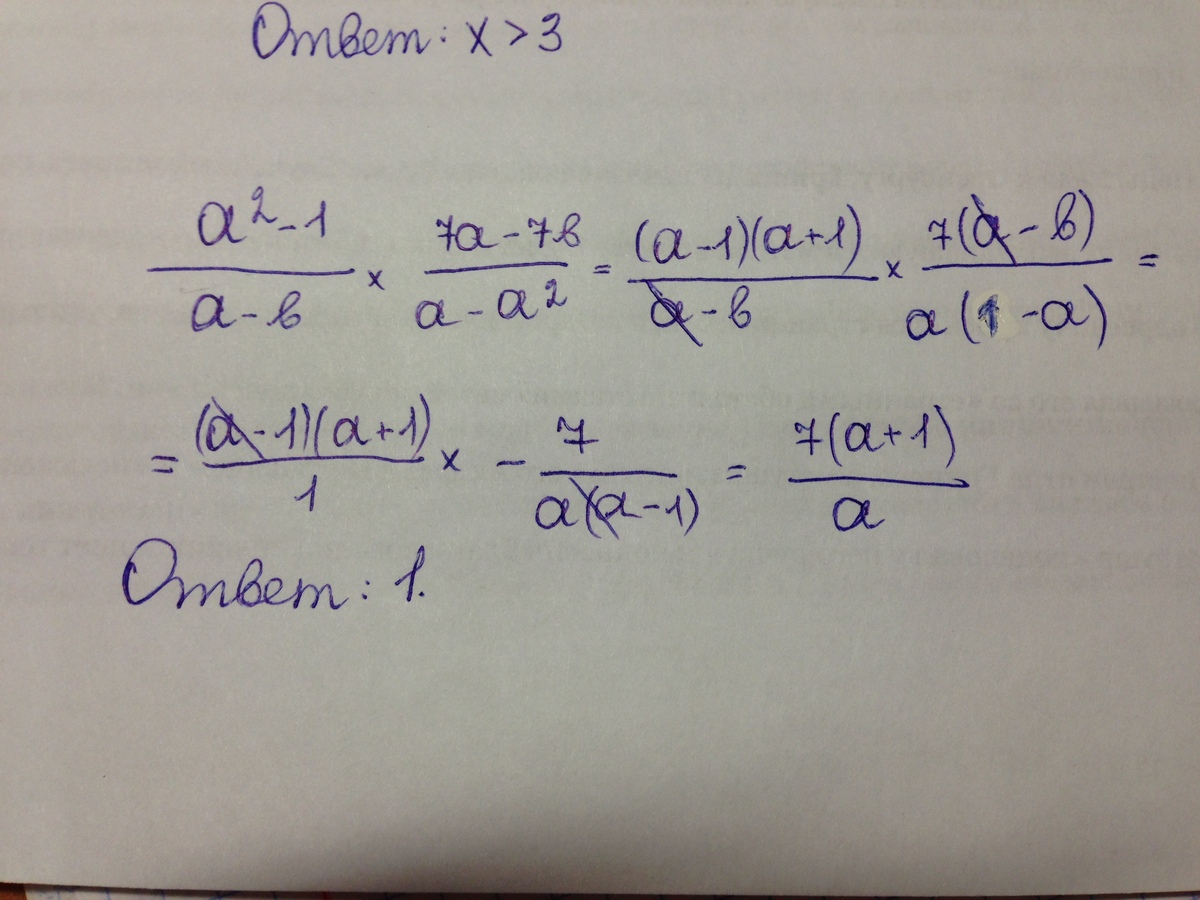 Ответ: x > 3
a² - 1 / a - в × 7a - 7в / a - a² = (a - 1)(a + 1) / a - в × 7(a - в) / a(1 - a) =
= (a - 1)(a + 1) / 1 × - 7 / a(a - 1) = 7(a + 1) / a
Ответ: 1.